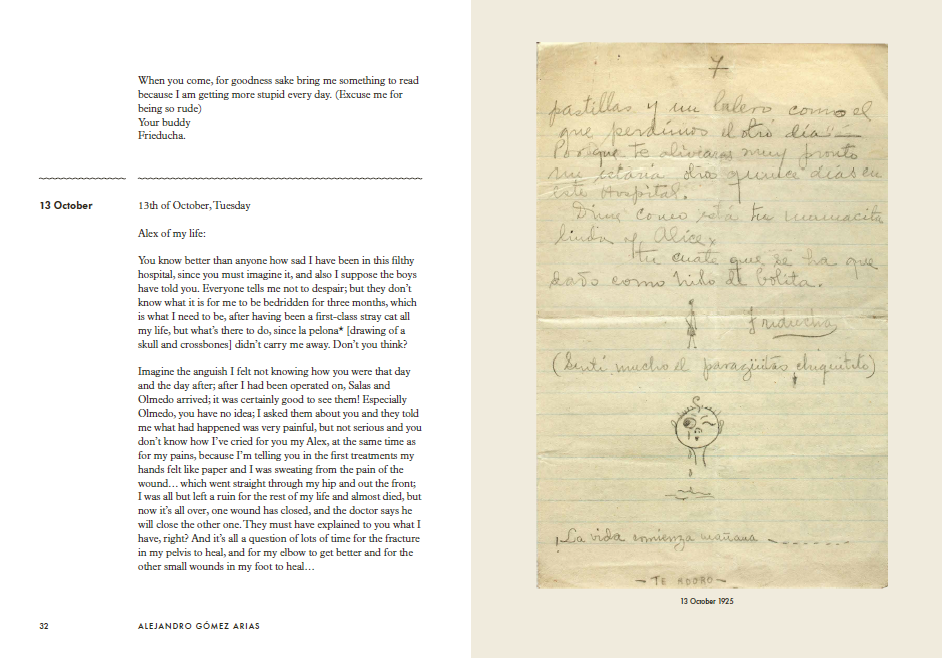 When you come, for goodness sake bring me something to read
because I am getting more stupid every day. (Excuse me for
being so rude)
Your buddy
Frieducha.
13 October
13th of October, Tuesday
Alex of my life:
You know better than anyone how sad I have been in this filthy
hospital, since you must imagine it, and also I suppose the boys
have told you. Everyone tells me not to despair; but they don’t
know what it is for me to be bedridden for three months, which
is what I need to be, after having been a first-class stray cat all
my life, but what’s there to do, since la pelona* [drawing of a
skull and crossbones] didn’t carry me away. Don’t you think?
Imagine the anguish I felt not knowing how you were that day
and the day after; after I had been operated on, Salas and
Olmedo arrived; it was certainly good to see them! Especially
Olmedo, you have no idea; I asked them about you and they told
me what had happened was very painful, but not serious and you
don’t know how I’ve cried for you my Alex, at the same time as
for my pains, because I’m telling you in the first treatments my
hands felt like paper and I was sweating from the pain of the
wound… which went straight through my hip and out the front;
I was all but left a ruin for the rest of my life and almost died, but
now it’s all over, one wound has closed, and the doctor says he
will close the other one. They must have explained to you what I
have, right? And it’s all a question of lots of time for the fracture
in my pelvis to heal, and for my elbow to get better and for the
other small wounds in my foot to heal…
32
ALEJANDRO GÓMEZ ARIAS
7
pastillas y un balero como el
que perdimos el otro día
Porque te alivies muy pronto
me estaría otros quince días en
este Hospital.
Dime como está tu mamacita
linda y Alice
tu cuate que se ha que
dado como hilo de bolita.
Friducha
(Sentí mucho el paragüitas chiquitito)
¡La vida comienza mañana
– TE ADORO –
13 October 1925